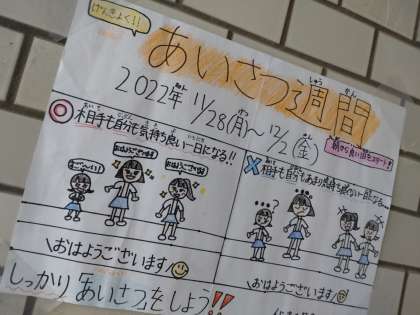 げんきよく!!
あいさつ週間
しゅう かん
2022年 11/28(月)〜12/2(金)
朝から良い日をスタート!
◎相手も自分も気持ち良い一日になる!!
×相手も自分もあまり気持ち良くない一日になる…
おはようございます
おはようございます
\おはようございます/
\おはようございます/
しっかり「あいさつ」をしよう!!